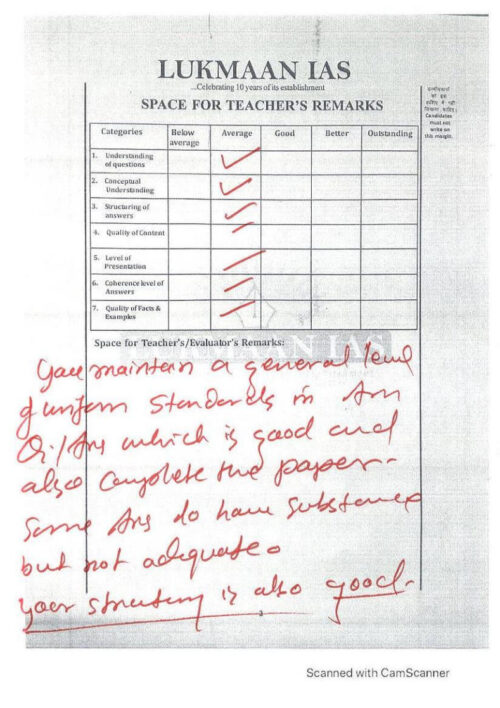 LUKMAAN IAS
...Celebrating 10 years of its establishment
SPACE FOR TEACHER'S REMARKS
उम्मीदवारों
को इस
हाशिए में नहीं
लिखना चाहिए।
Candidates
must not
write on
this margin.
Categories Below average Average Good Better Outstanding
1. Understanding of questions ✓
2. Conceptual Understanding ✓
3. Structuring of answers ✓
4. Quality of Content
5. Level of Presentation
6. Coherence level of Answers
7. Quality of Facts & Examples
LUKMAAN IAS
Space for Teacher's/Evaluator's Remarks:
You maintain a general level
of uniform standards in
which is good and
also complete the paper-
Some Ans do have substance
but not adequate.
your structuring is also good.
Scanned with CamScanner